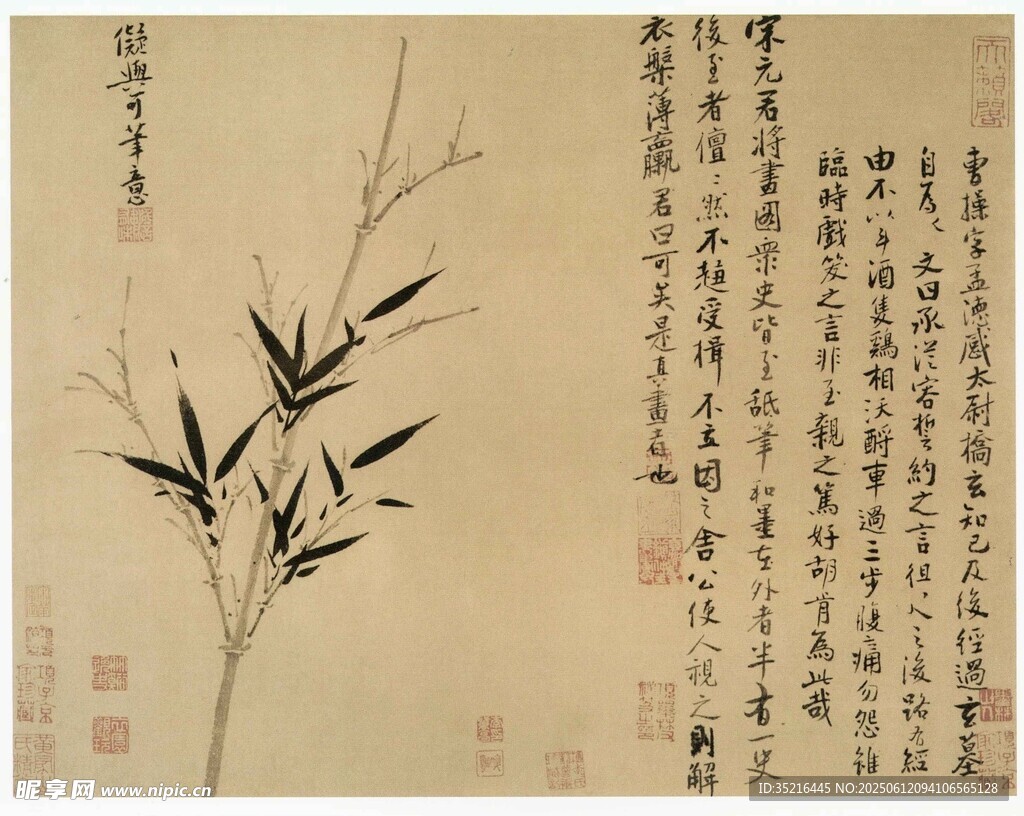 天籟閣
曹操字孟德感太尉橋玄知己及後經過玄墓
自為文曰承從容誓約之言徂之後路有經
由不以斗酒隻鷄相沃酹車過三步腹痛勿怨雖
臨時戲笑之言非至親之篤好胡肯為此哉
宋元君將畫圖衆史皆至舐筆和墨在外者半有一史
後至者儃〻然不趨受揖不立因之舍公使人視之則解
衣槃薄臝君曰可矣是真畫者也
儗與可筆意
項子京
家珍藏
昵享网 www.nipic.cn
ID:35216445 NO:20250612094106565128